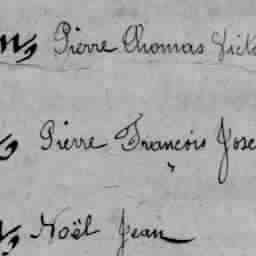 Pierre Thomas Vict
Pierre François Jose
Noël Jean